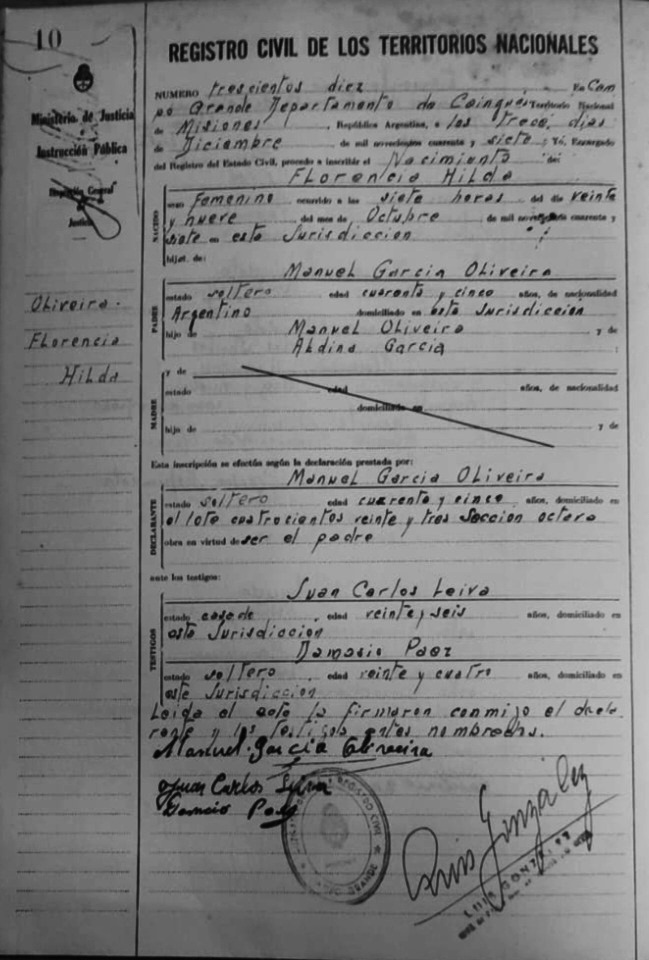 10
Ministerio de Justicia
e
Instrucción Pública
Inspección General
de
Justicia
Oliveira.
Florencia
Hilda
REGISTRO CIVIL DE LOS TERRITORIOS NACIONALES
NUMERO trescientos diez En Cam
po Grande Departamento de Cainguás Territorio Nacional
de Misiones, República Argentina, a los trece dias
de Diciembre de mil novecientos cuarenta y siete: Yó, Encargado
del Registro del Estado Civil, procedo a inscribir el Nacimiento de:
Florencia Hilda
NACIDO
sexo femenino ocurrido a las siete horas del día veinte
y nueve del mes de Octubre de mil novecientos cuarenta y
siete en esta Jurisdiccion
hijat. de:
Manuel Garcia Oliveira
PADRE
estado soltero edad cuarenta y cinco años, de nacionalidad
Argentino domiciliado en esta Jurisdiccion
hijo de Manuel Oliveira y de
Aldina Garcia
y de
MADRE
estado edad años, de nacionalidad
domiciliado en
hijo de y de
Esta inscripción se efectúa según la declaración prestada por:
Manuel Garcia Oliveira
DECLARANTE
estado soltero edad cuarenta y cinco años, domiciliado en
el lote cuatrocientos veinte y tres Seccion octava
obra en virtud de ser el padre
ante los testigos:
Juan Carlos Leiva
TESTIGOS
estado casado edad veinte y seis años, domiciliado en
esta Jurisdiccion
Damasio Paez
estado soltero edad veinte y cuatro años, domiciliado en
este Jurisdiccion
Leida el acta la firmaron conmigo el decla
rante y los testigos antes nombrados.
Manuel Garcia Oliveira
Juan Carlos Leiva
REGISTRO CIVIL
GRANDE
Luis González
LUIS GONZALEZ